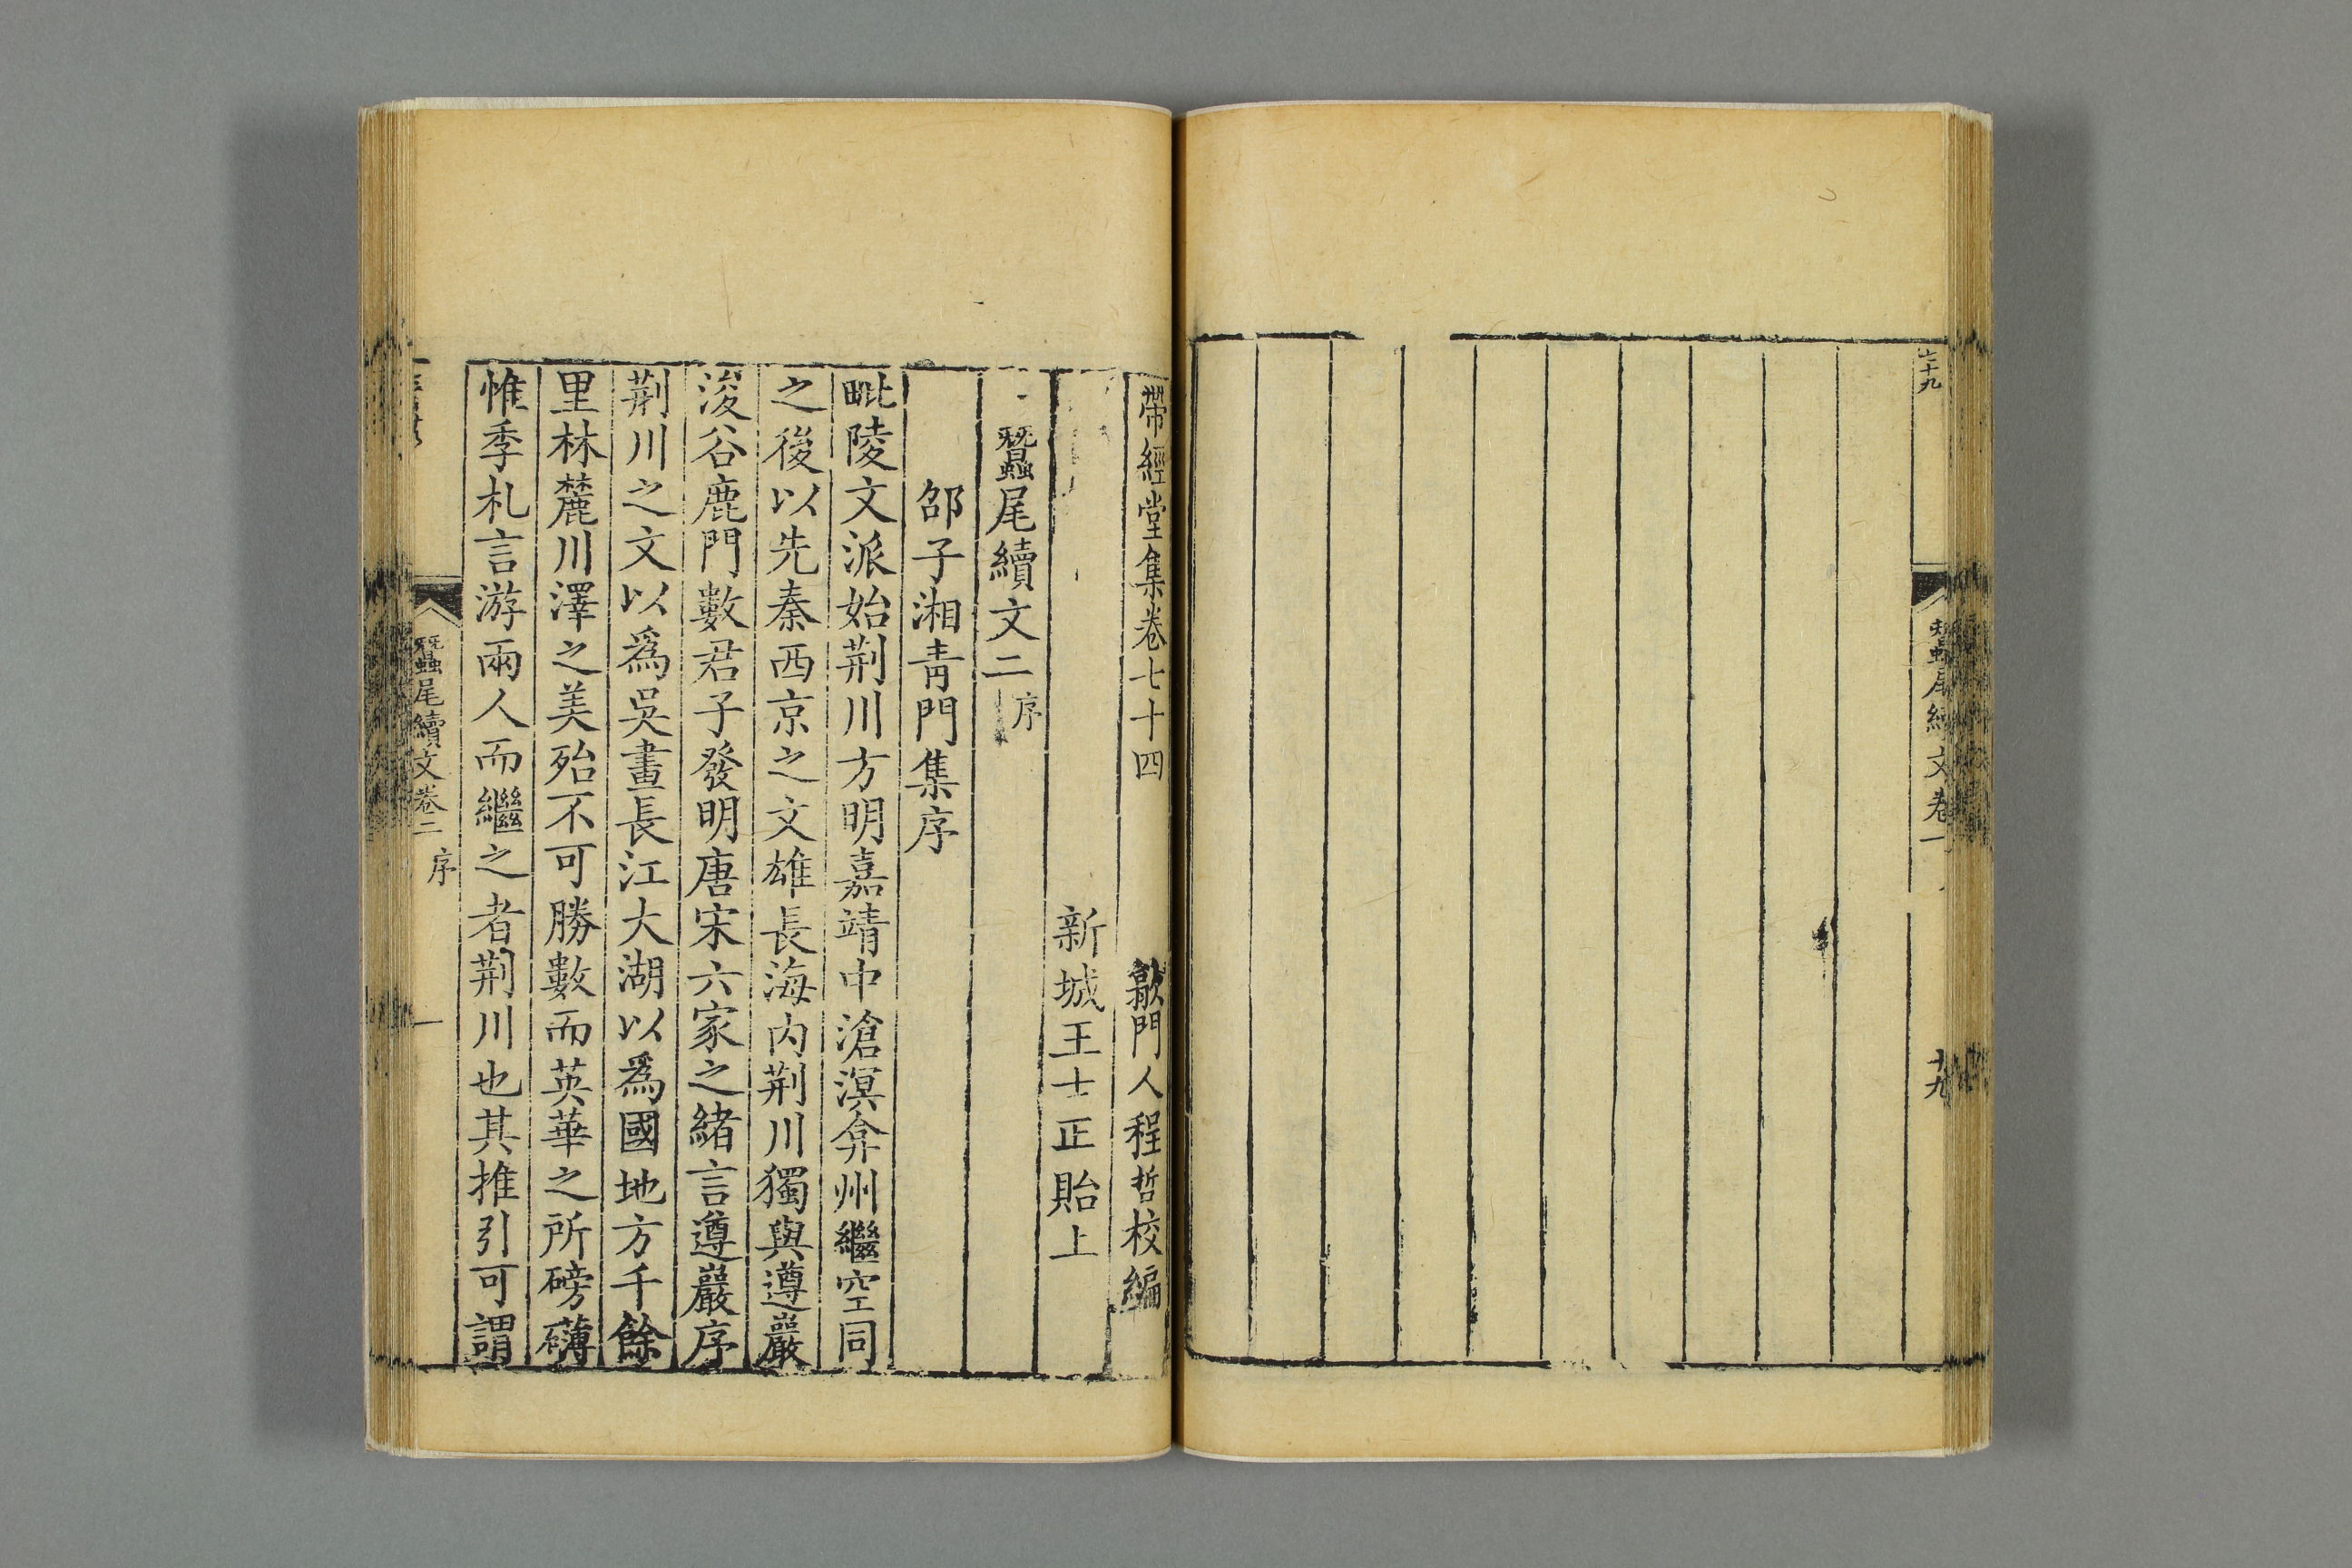 十九
帶經堂集卷七十四 歙門人程哲校編
新城王士正貽上
蠶尾續文二 序
邵子湘青門集序
毗陵文派始荆川方明嘉靖中滄溟弇州繼空同
之後以先秦西京之文雄長海内荆川獨與遵巖
浚谷鹿門數君子發明唐宋六家之緒言遵巖序
荆川之文以爲吳畫長江大湖以爲國地方千餘
里林麓川澤之美殆不可勝數而英華之所磅礴
惟季札言游兩人而繼之者荆川也其推引可謂
蠶尾續文卷二 序 一